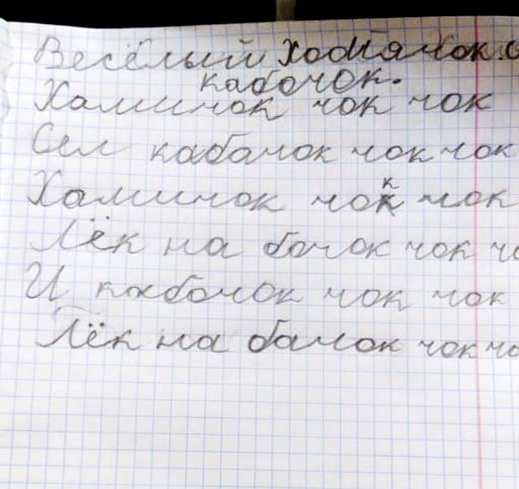 Весёлый хомячок.
кабочок.
Хамичок чок чок
Сел кабачок чок чок
Хамичок чок чок
Лёк на бочок чок
И кабочок чок чок
Лёк на бачок чок чо